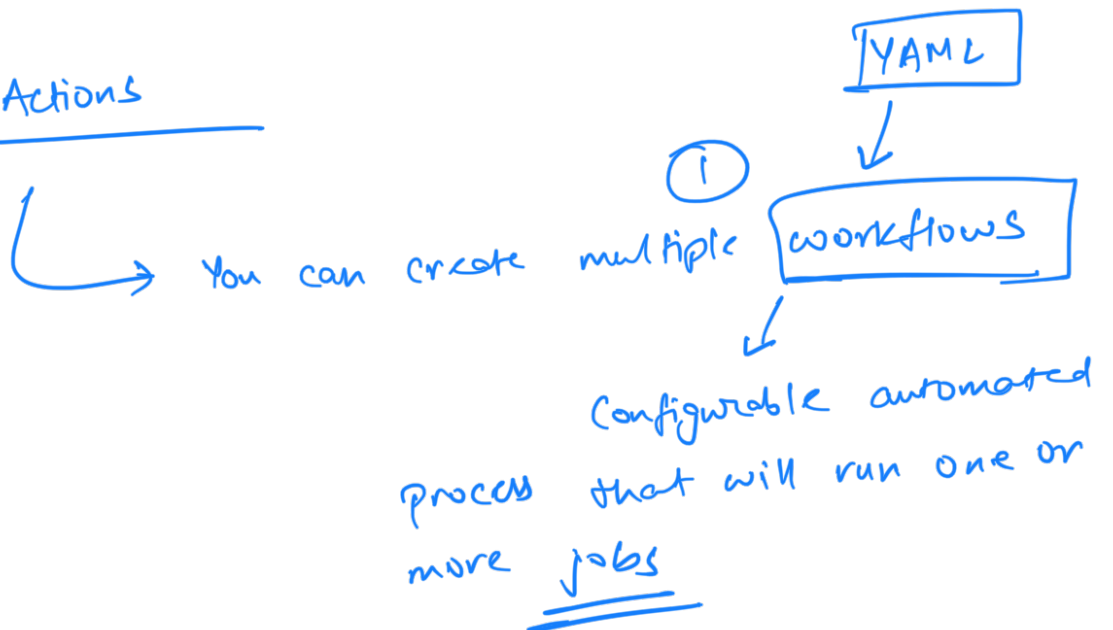 YAML
Actions
1
You can create multiple workflows
Configurable automated
process that will run one or
more jobs